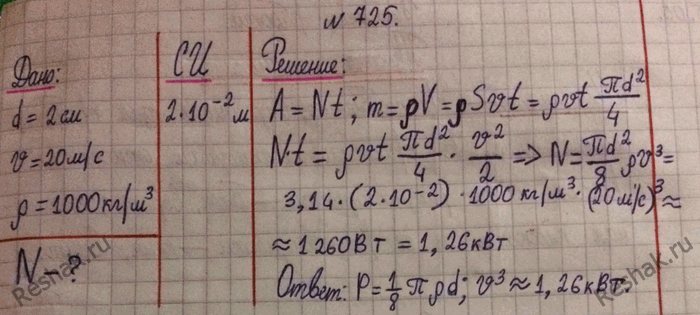 № 725.
Дано:
d = 2 см
v = 20 м/с
ρ = 1000 кг/м³
N - ?
СИ
2·10⁻² м
Решение:
A = Nt; m = ρV = ρSvt = ρvt πd²/4
N·t = ρvt πd²/4 · v²/2 => N = πd²/8 ρv³ =
3,14·(2·10⁻²)·1000 кг/м³·(20 м/с)³ ≈
≈ 1260 Вт = 1,26 кВт
Ответ: P = 1/8 π ρd; v³ ≈ 1,26 кВт.
Reshak.ru
Reshak.ru